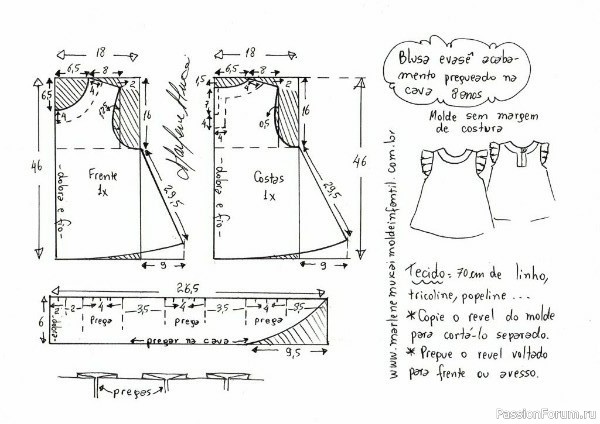 18
6,5
8
2
6,5
4
1,5
16
46
dobra e fio
Frente
1x
29,5
9
Marlene Mukai
18
6,5
8
1,5
2
7
4
4
0,5
16
46
dobra e fio
Costas
1x
29,5
9
26,5
6
dobra
2
4
3,5
4
3,5
4
3,5
prega
prega
prega
pregar na cava
9,5
pregas
www.marlenemukaimoldeinfantil.com.br
Blusa evasê acaba-
mento pregueado na
cava 8 anos
Molde sem margem
de costura
Tecido = 70 cm de linho,
tricoline, popeline ...
* Copie o revel do molde
para cortá-lo separado.
* Prepue o revel voltado
para frente ou avesso.
PassionForum.ru